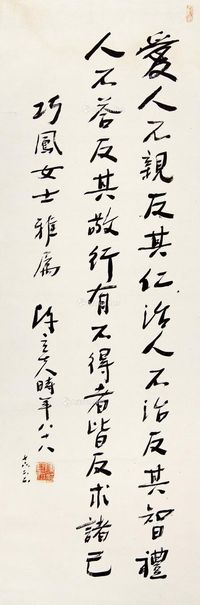 愛人不親反其仁治人不治反其智禮
人不答反其敬行有不得者皆反求諸己
巧鳳女士雅屬
陳立夫時年八十八